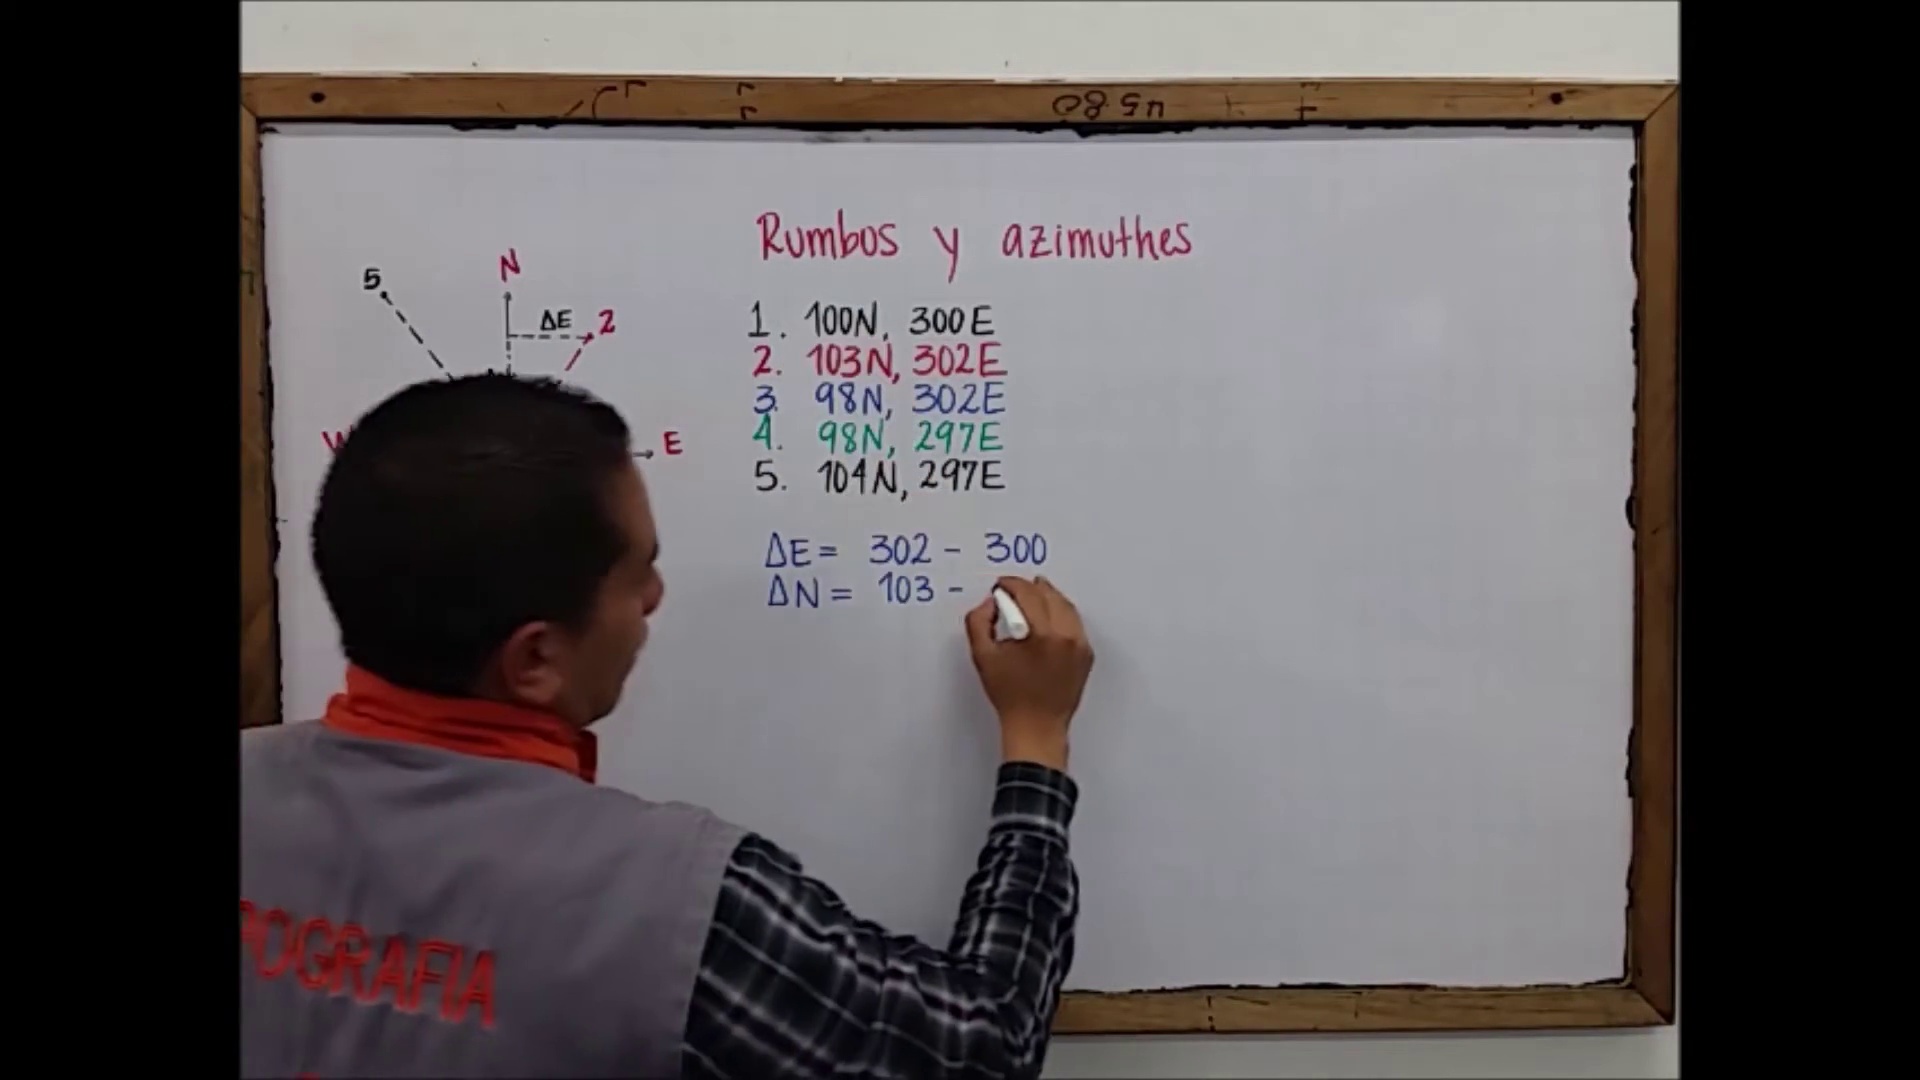 Rumbos y azimuthes
5
N
ΔE 2
E
1. 100N, 300E
2. 103N, 302E
3. 98N, 302E
4. 98N, 297E
5. 104N, 297E
ΔE = 302 - 300
ΔN = 103 -